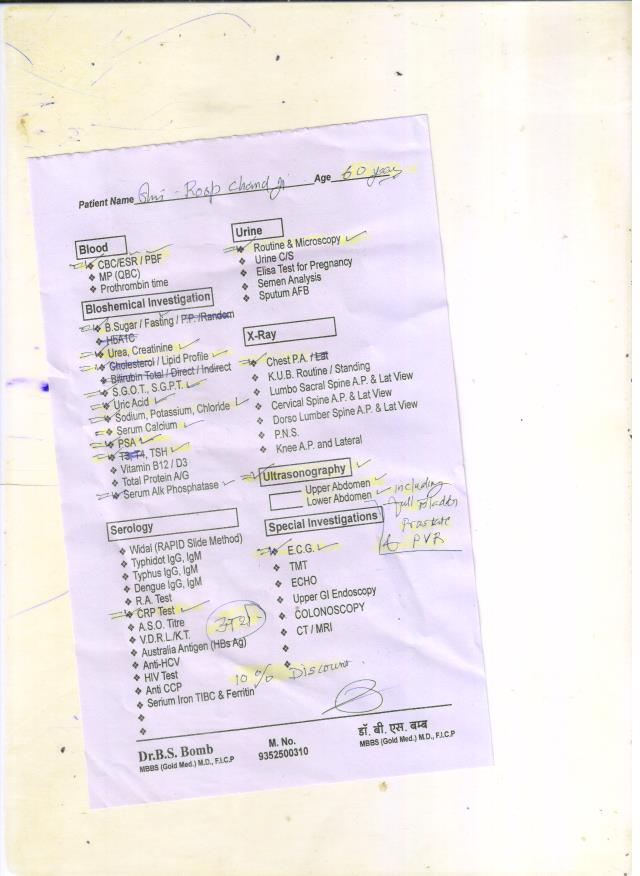 Patient Name Shri - Roop Chand ji Age 60 years
Blood
CBC/ESR / PBF
MP (QBC)
Prothrombin time
Bioshemical Investigation
B.Sugar / Fasting / P.P. /Random
HbA1C
Urea, Creatinine
Cholesterol / Lipid Profile
Bilirubin Total / Direct / Indirect
S.G.O.T., S.G.P.T.
Uric Acid
Sodium, Potassium, Chloride
Serum Calcium
PSA
T3, T4, TSH
Vitamin B12 / D3
Total Protein A/G
Serum Alk Phosphatase
Serology
Widal (RAPID Slide Method)
Typhidot IgG, IgM
Typhus IgG, IgM
Dengue IgG, IgM
R.A. Test
CRP Test
A.S.O. Titre
V.D.R.L./K.T.
Australia Antigen (HBs Ag)
Anti-HCV
HIV Test
Anti CCP
Serium Iron TIBC & Ferritin
Urine
Routine & Microscopy
Urine C/S
Elisa Test for Pregnancy
Semen Analysis
Sputum AFB
X-Ray
Chest P.A. / Lat
K.U.B. Routine / Standing
Lumbo Sacral Spine A.P. & Lat View
Cervical Spine A.P. & Lat View
Dorso Lumber Spine A.P. & Lat View
P.N.S.
Knee A.P. and Lateral
Ultrasonography
Upper Abdomen
Lower Abdomen including
full Bladder
Prostate
PVR
Special Investigations
E.C.G.
TMT
ECHO
Upper GI Endoscopy
COLONOSCOPY
CT / MRI
10 % Discount.
Dr.B.S. Bomb
MBBS (Gold Med.) M.D., F.I.C.P
M. No.
9352500310
डॉ. बी. एस. बम्ब
MBBS (Gold Med.) M.D., F.I.C.P